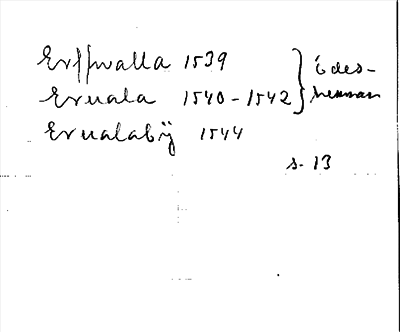 Erffwalla 1539 } ödes-
Eruala 1540-1542 } hemman
Erualabÿ 1544
s. 13